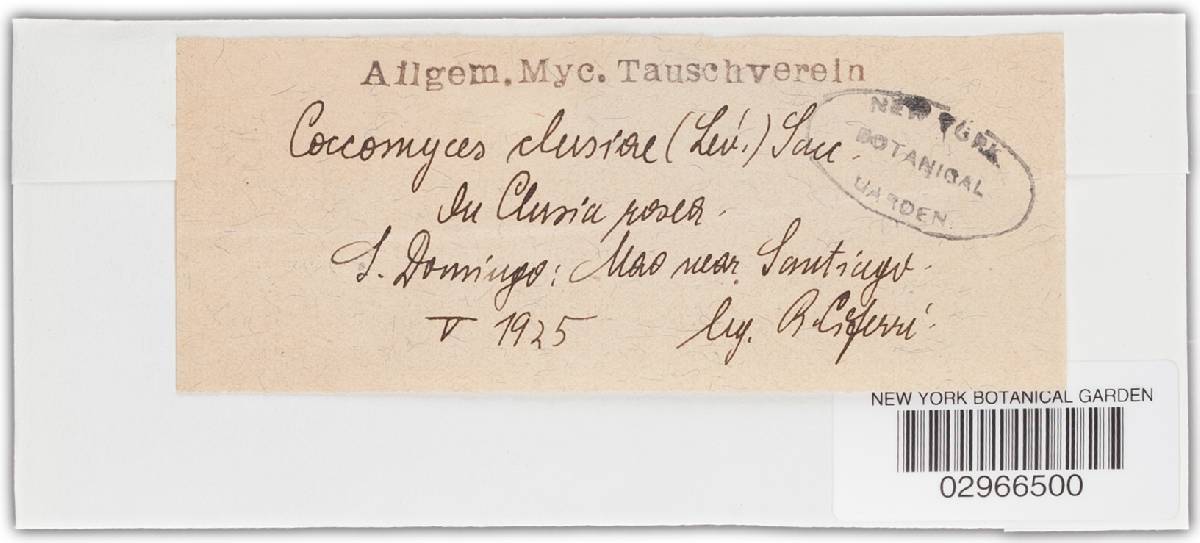 Allgem. Myc. Tauschverein
Coccomyces clusiae (Lév.) Sacc.
On Clusia rosea.
S. Domingo: Mao near Santiago.
V 1925 leg. R. Ciferri.
NEW YORK
BOTANICAL
GARDEN
NEW YORK BOTANICAL GARDEN
02966500